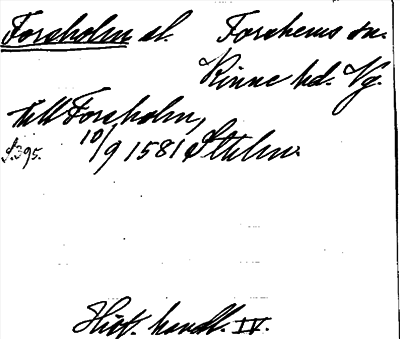 Forsholm sl. Forshems sn.
Kinne hd. Vg.
till Forsholm,
S.395. 10/9 1581 Sthlm.
Hist. handl. IV.